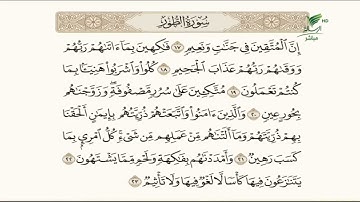 سُورَةُ الطُّورِ
إِنَّ الْمُتَّقِينَ فِي جَنَّاتٍ وَنَعِيمٍ ١٧ فَاكِهِينَ بِمَا آتَاهُمْ رَبُّهُمْ
وَوَقَاهُمْ رَبُّهُمْ عَذَابَ الْجَحِيمِ ١٨ كُلُوا وَاشْرَبُوا هَنِيئًا بِمَا
كُنتُمْ تَعْمَلُونَ ١٩ مُتَّكِئِينَ عَلَىٰ سُرُرٍ مَّصْفُوفَةٍ وَزَوَّجْنَاهُم
بِحُورٍ عِينٍ ٢٠ وَالَّذِينَ آمَنُوا وَاتَّبَعَتْهُمْ ذُرِّيَّتُهُم بِإِيمَانٍ أَلْحَقْنَا
بِهِمْ ذُرِّيَّتَهُمْ وَمَا أَلَتْنَاهُم مِّنْ عَمَلِهِم مِّن شَيْءٍ كُلُّ امْرِئٍ بِمَا
كَسَبَ رَهِينٌ ٢١ وَأَمْدَدْنَاهُم بِفَاكِهَةٍ وَلَحْمٍ مِّمَّا يَشْتَهُونَ ٢٢
يَتَنَازَعُونَ فِيهَا كَأْسًا لَّا لَغْوٌ فِيهَا وَلَا تَأْثِيمٌ ٢٣